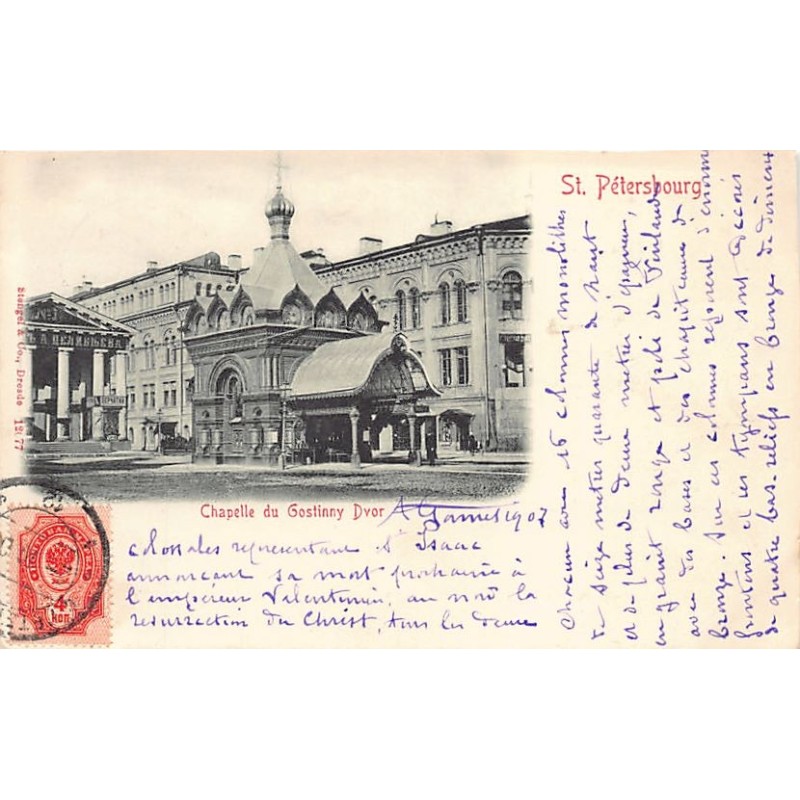 St. Pétersbourg
Stengel & Co., Dresde 12177
А. ЦЕЛИБѢЕВА
Chapelle du Gostinny Dvor
1902
4
КОП.
Chacun avec 16 colonnes monolithes
de seize mètres quarante de haut
et de plus de deux mètres d'épaisseur,
en granit rouge et poli de Finlande
avec des bases et des chapiteaux de
bronze. Sur ces colonnes reposent d'énormes
frontons et les tympans sont décorés
de quatre bas-reliefs en bronze de dimensions
colossales représentant St Isaac
annonçant sa mort prochaine à
l'empereur Valentinien, au nord la
resurrection du Christ, dans les deux